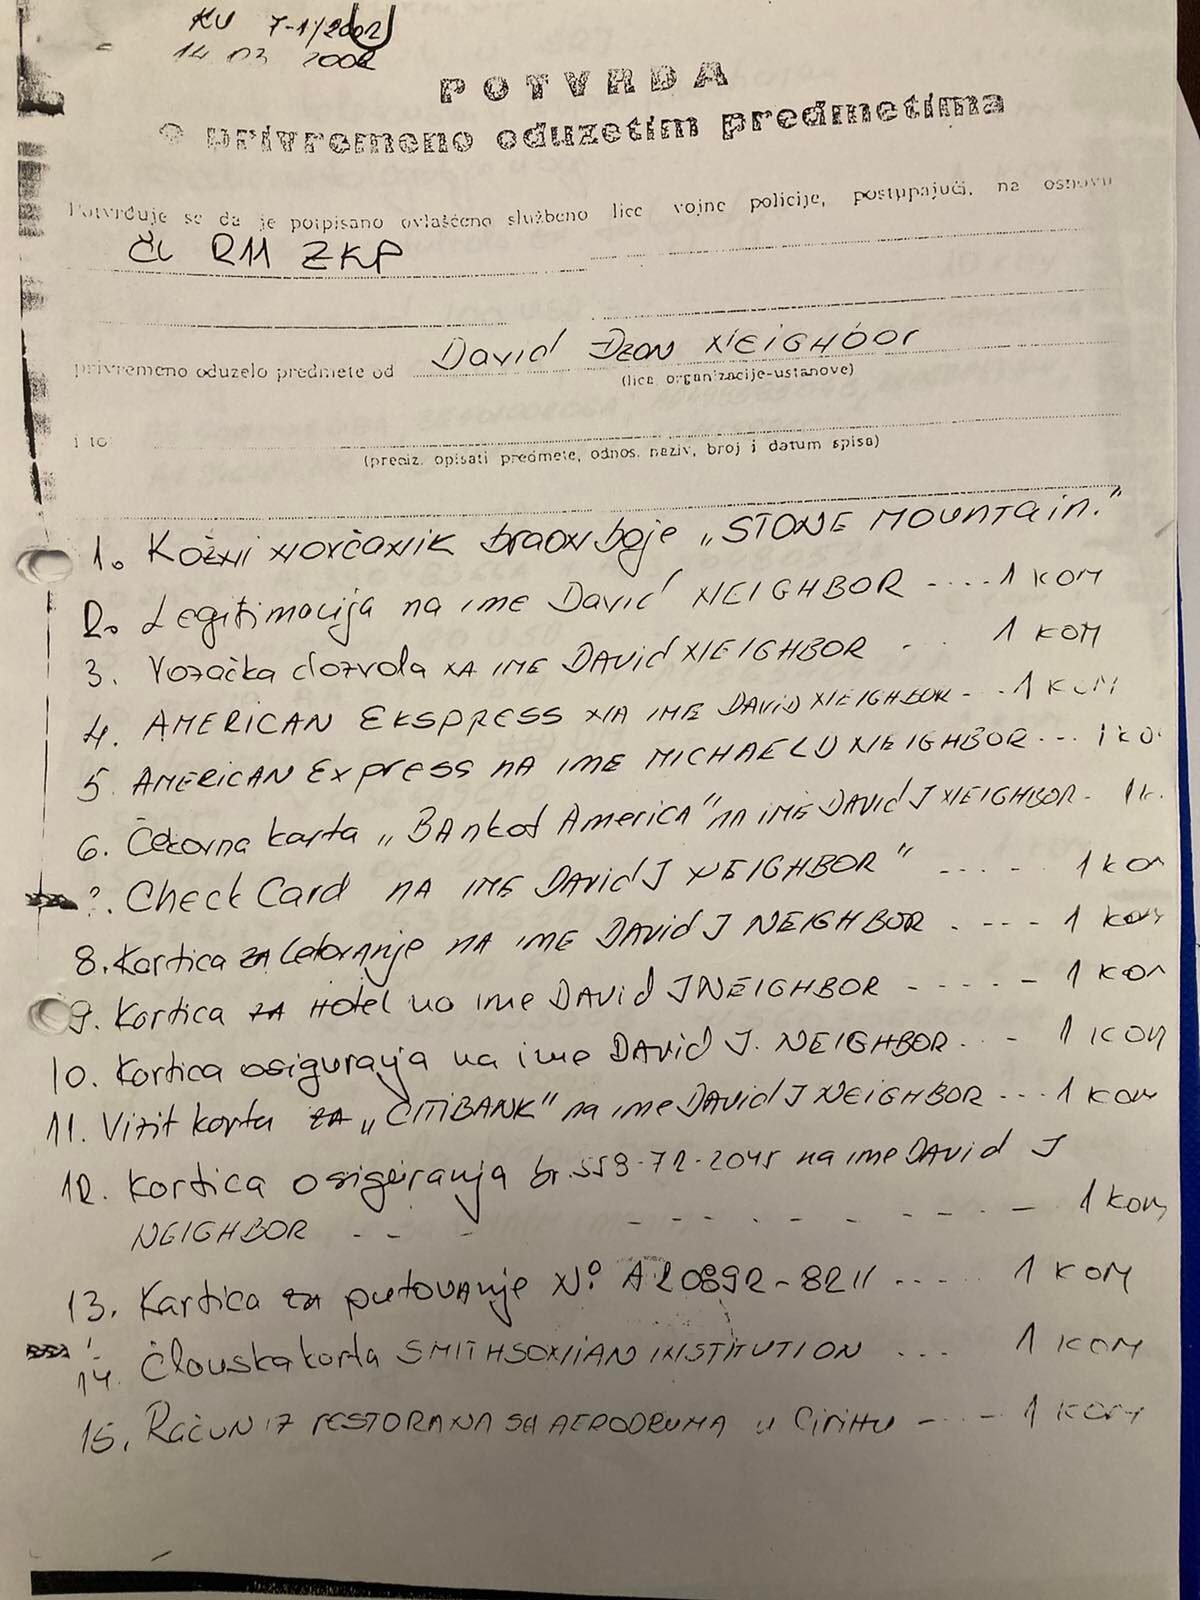 KV 7-1/2002
14 03 2002
POTVRDA
o privremeno oduzetim predmetima
Potvrđuje se da je potpisano ovlašćeno službeno lice vojne policije, postupajući, na osnovu
Čl 211 ZKP
privremeno oduzelo predmete od David Džon NEIGHBOR
(lica, organizacije-ustanove)
i to:
(preciz. opisati predmete, odnos. naziv, broj i datum spisa)
1. Kožni novčanik braon boje „STONE MOUNTAIN."
2. Legitimacija na ime David NEIGHBOR ....1 KOM
3. Vozačka dozvola NA IME DAVID NEIGHBOR .. 1 KOM
4. AMERICAN EKSPRESS NA IME DAVID NEIGHBOR - - - 1 KOM
5. AMERICAN Express NA IME MICHAEL NEIGHBOR --- 1 KO
6. Čekovna karta „BAnk of America" NA IME DAVID J NEIGHBOR - 1 k.
?. Check Card NA IME DAVID J NEIGHBOR" ..... 1 KOM
8. Kartica ZA Letovanje NA IME DAVID J NEIGHBOR .--- 1 KOM
9. Kartica ZA HOTEL na ime DAVID J NEIGHBOR ----- 1 KOM
10. Kartica osiguranja na ime DAVID J. NEIGHBOR - - - 1 KOM
11. Vizit karta ZA „CITIBANK" na ime DAVID J NEIGHBOR --- 1 KOM
12. Kartica osiguranja br. 559-72-2045 na ime DAVID J
NEIGHBOR - - - - - - - - - - 1 KOM
13. Kartica za putovanje No A20892-8211 .... 1 KOM
14. Članska karta SMITHSONIAN INSTITUTION ... 1 KOM
15. RAČUN IZ RESTORANA SA AERODROMA u Cirihu ---- 1 KOM